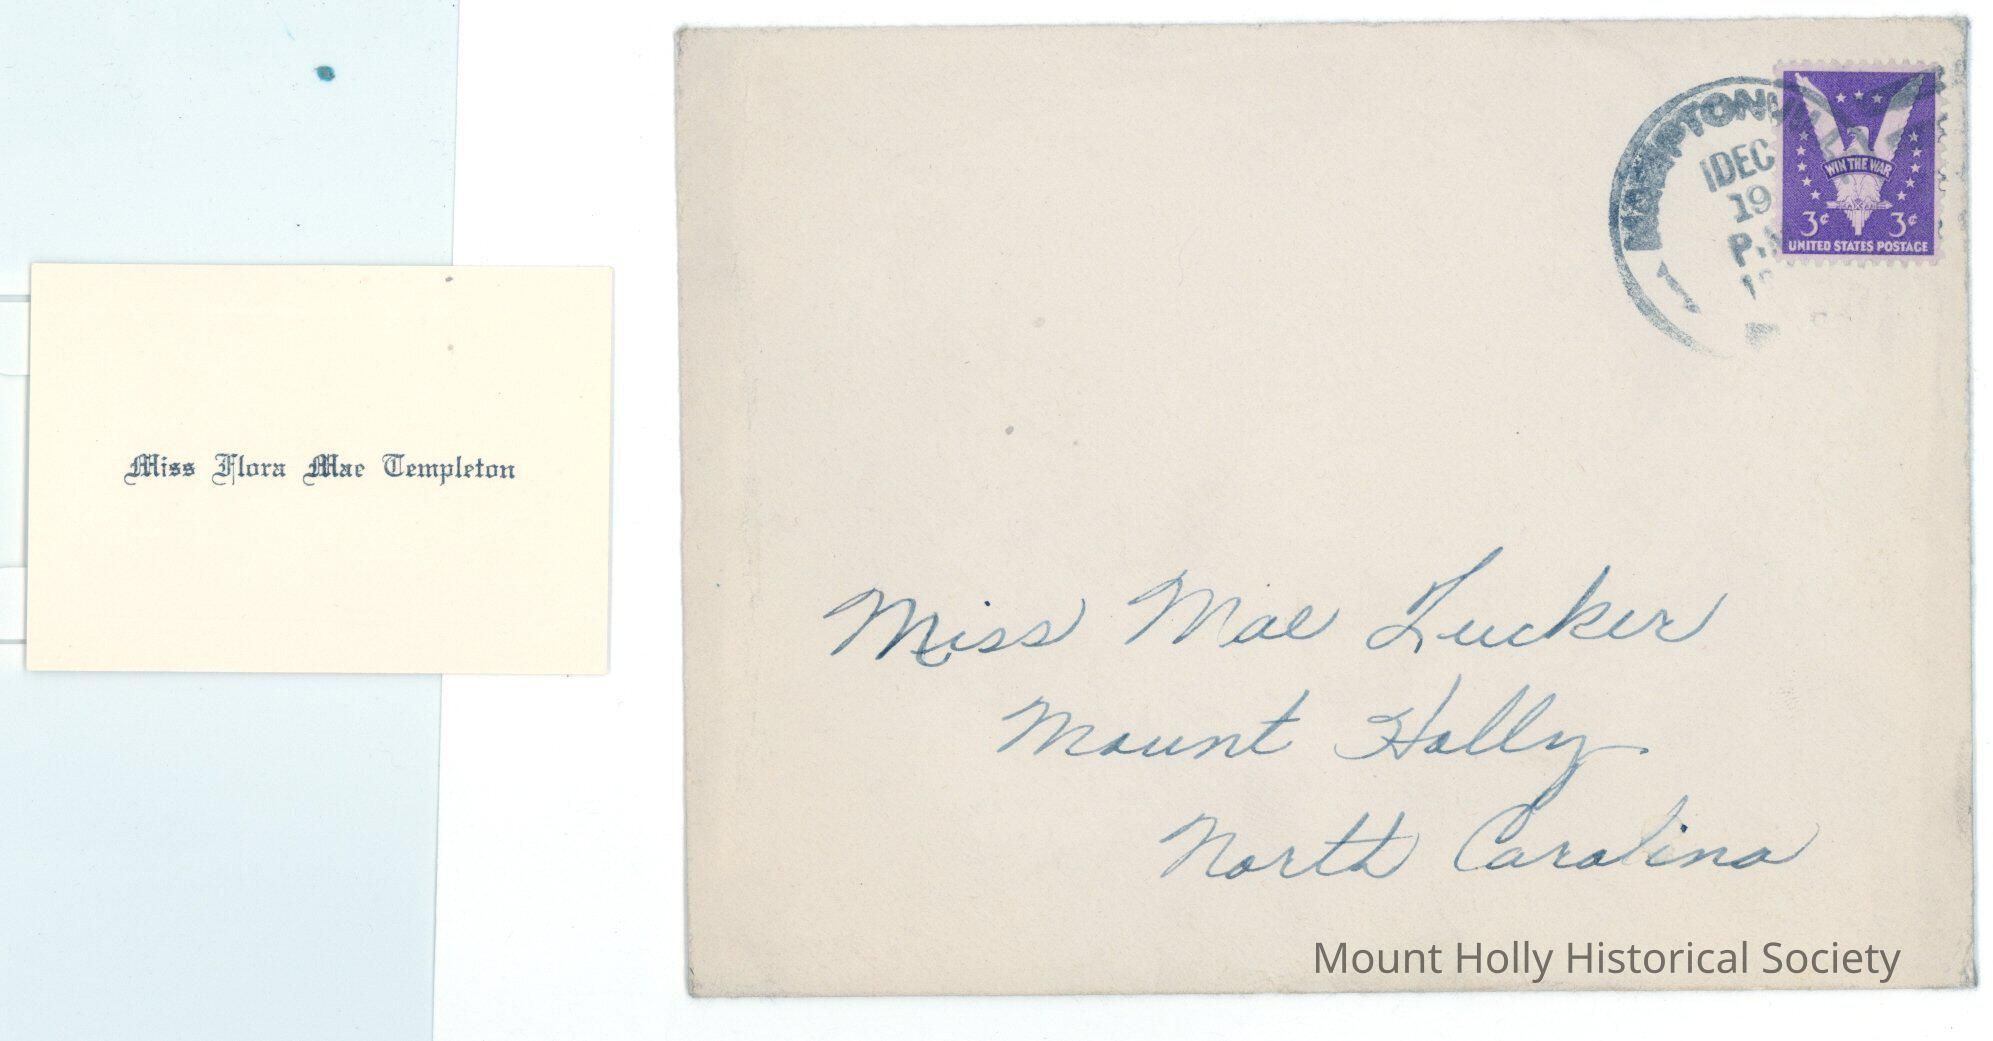 Miss Flora Mae Templeton
HAMPTONVILLE
DEC
19
P.M
WIN THE WAR
3¢ 3¢
UNITED STATES POSTAGE
Miss Mae Tucker
Mount Holly
North Carolina
Mount Holly Historical Society